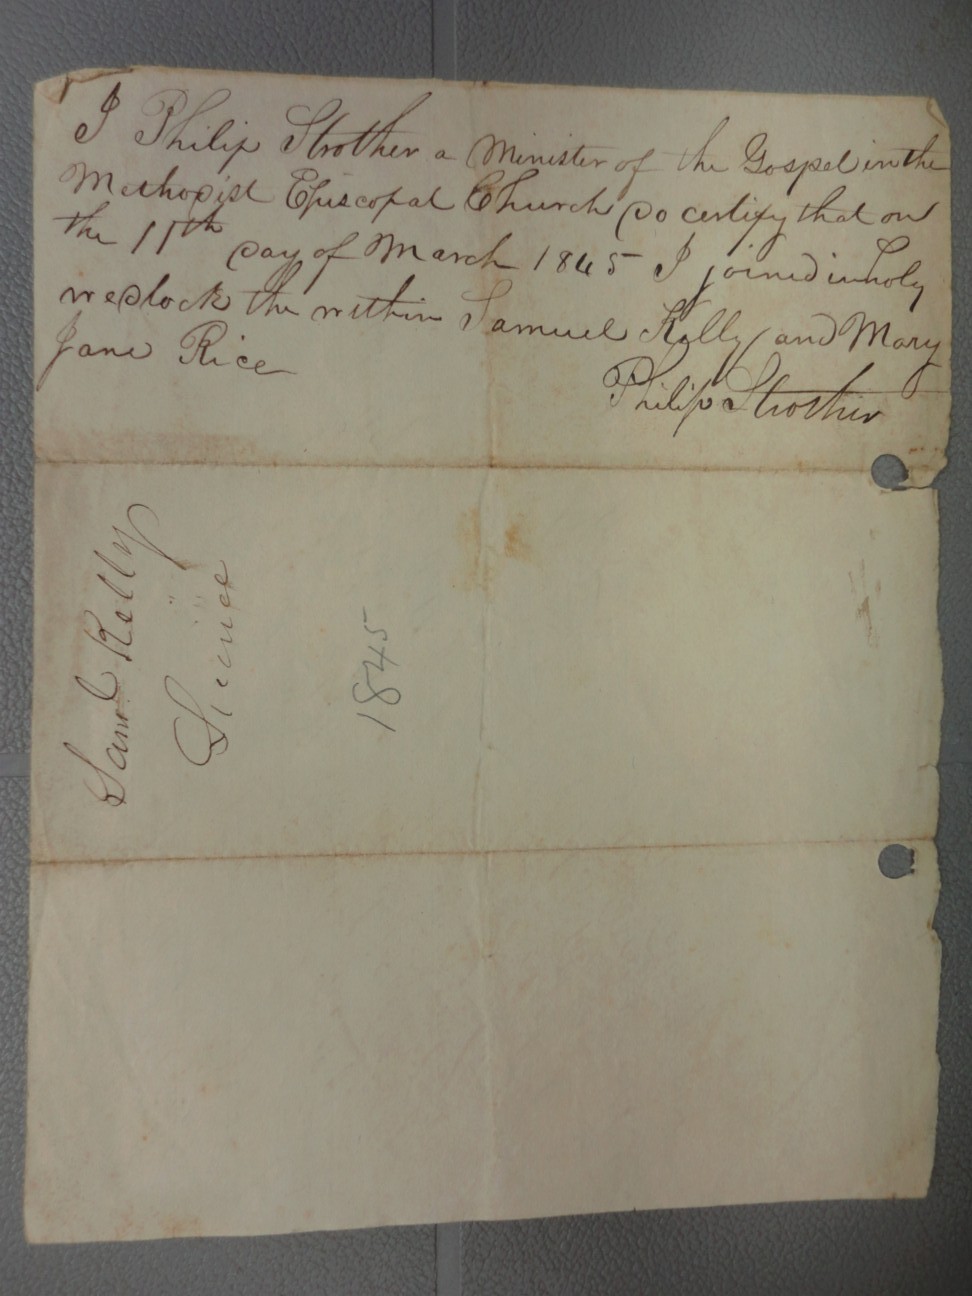 I Philip Strother a Minister of the Gospel in the
Methodist Episcopal Church do certify that on
the 11th day of March 1845 I joined in holy
wedlock the within Samuel Kelly and Mary
Jane Rice
Philip Strother
Saml Kelly
1845